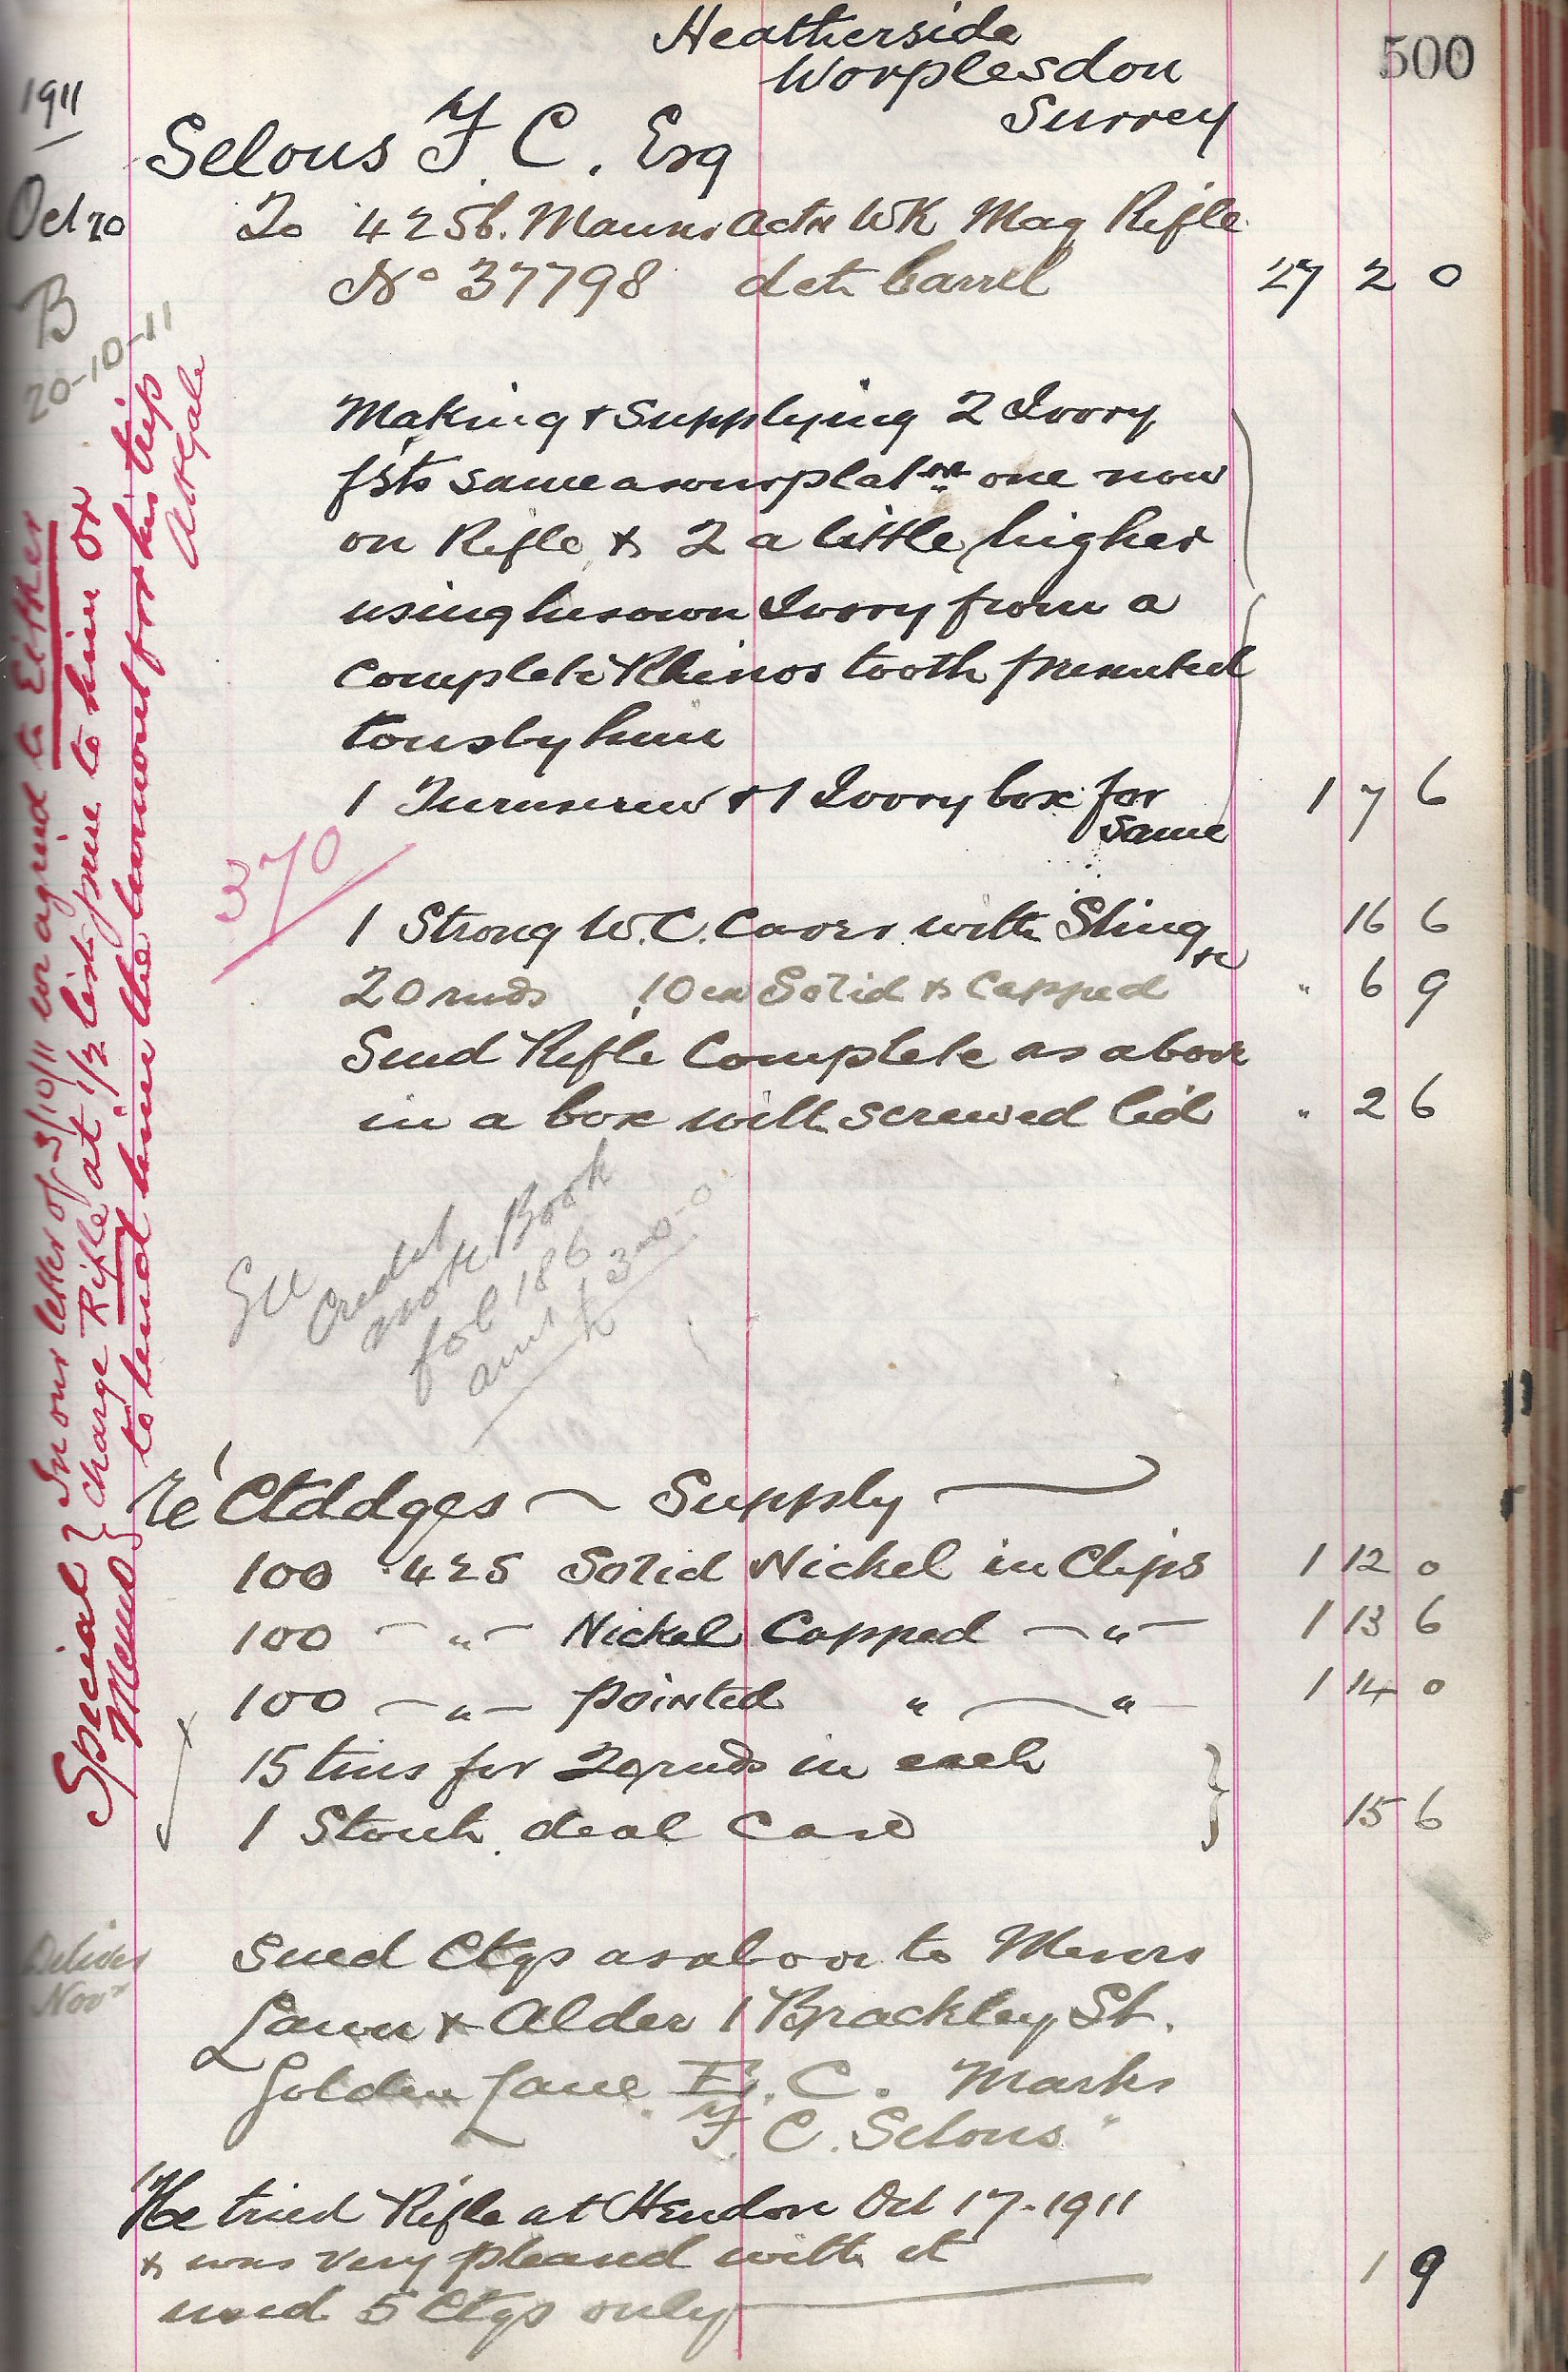 500
Heatherside
Worplesdon
Surrey
1911
Selous F. C. Esq
Oct 20
To 425 b. Mauser Actn WR Mag Rifle
No 37798 det barrel
27 2 0
B
20-10-11
Making & Supplying 2 Ivory
fsts same as our one now
on Rifle, & 2 a little higher
using his own Ivory from a
complete Rhinos tooth presented
to us by him
1 Turnscrew & 1 Ivory box for
same
1 7 6
370
1 Strong W.C. Cover with Sling
16 6
20 rnds 10 ea Solid & Capped
" 6 9
Send Rifle Complete as above
in a box with screwed lid
" 2 6
See Credit
note Book
fol 186
amt £ 3-0-0
Special Memo
In our letter of 3/10/11 we agreed to Either
charge Rifle at 1/2 list price to him or
to lend him the for his trip
Re Ctddges Supply
100 .425 Solid Nickel in Clips
1 12 0
100 " Nickel Capped "
1 13 6
100 " pointed " "
1 14 0
15 tins for 20 rnds in each
1 Stout deal Case
15 6
Deliver
Nov
Send Ctgs as above to Messrs
Lawn & Alder 1 Brackley St.
Golden Lane E. C. Marks
"F. C. Selous"
He tried Rifle at Hendon Oct 17-1911
& was very pleased with it
used 5 Ctgs only
1 9